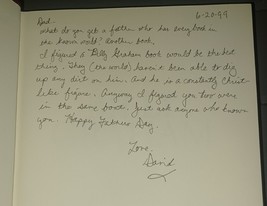 6-20-99
Dad,
What do you get a father who has every book in
the known world? Another book.
I figured a "Billy Graham book would be the best
thing. They (the world) haven't been able to dig
up any dirt on him. And he is a constantly Christ-
like figure. Anyway I figured you two were
in the same boat. Just ask anyone who knows
you. Happy Fathers Day.
Love,
David